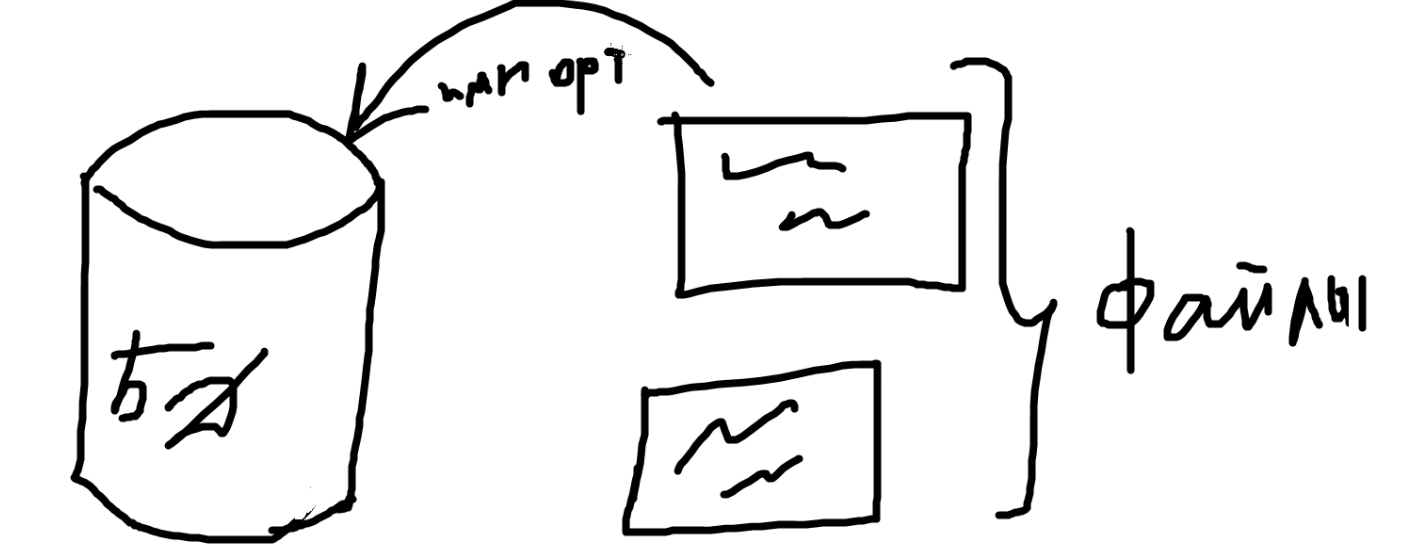 импорт
БД
файлы